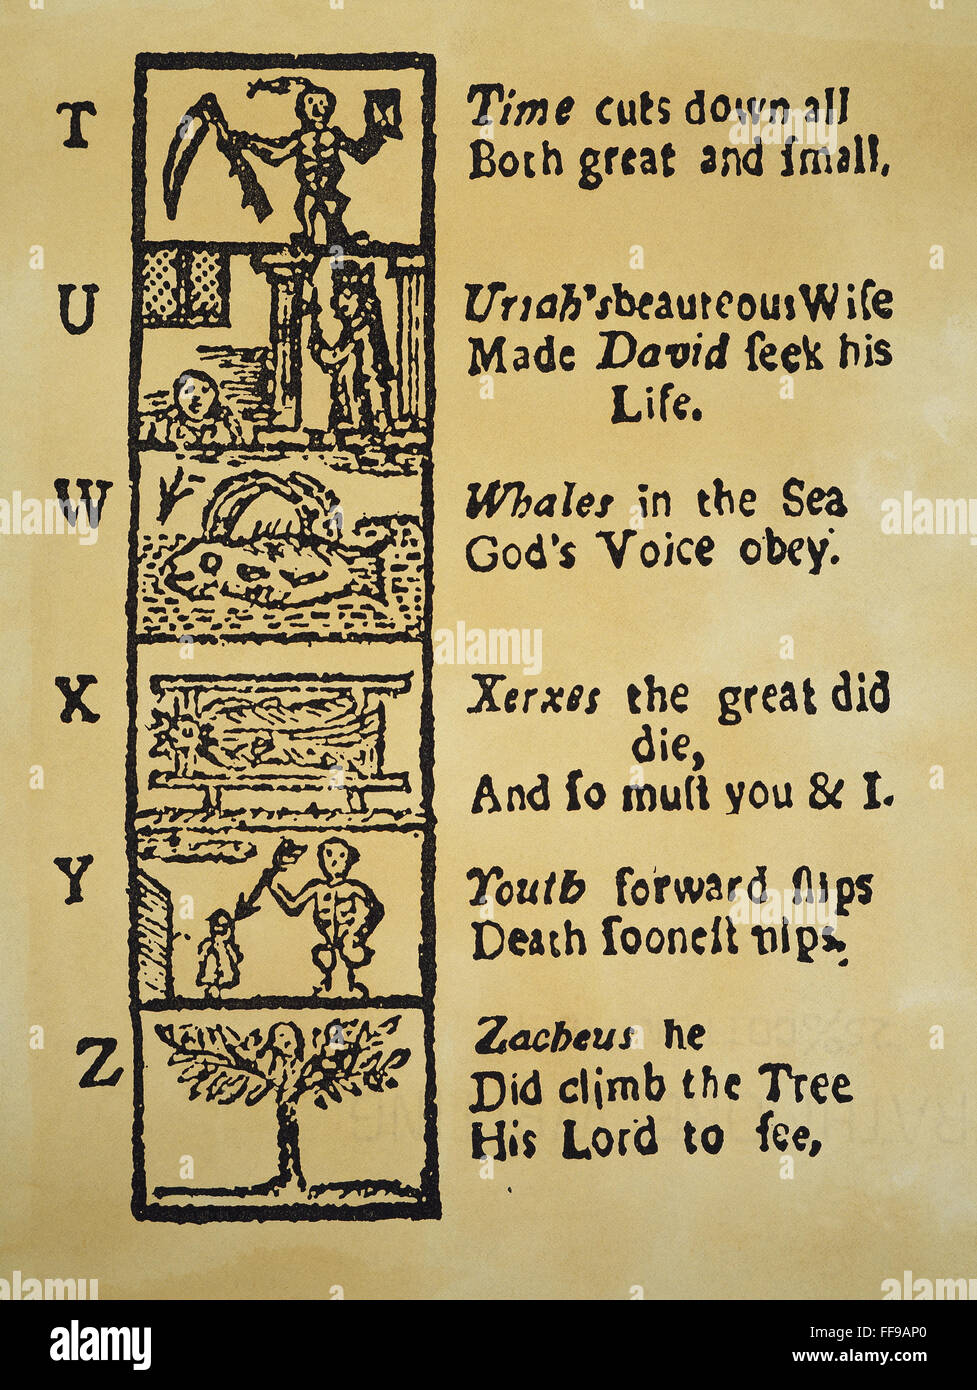 T
Time cuts down all
Both great and ſmall.
U
Uriah's beauteous Wife
Made David ſeek his
Life.
W
Whales in the Sea
God's Voice obey.
X
Xerxes the great did
die,
And ſo muſt you & I.
Y
Youth forward ſlips
Death ſooneſt nips.
Z
Zacheus he
Did climb the Tree
His Lord to ſee,
alamy stock photo
Image ID: FF9AP0
www.alamy.com